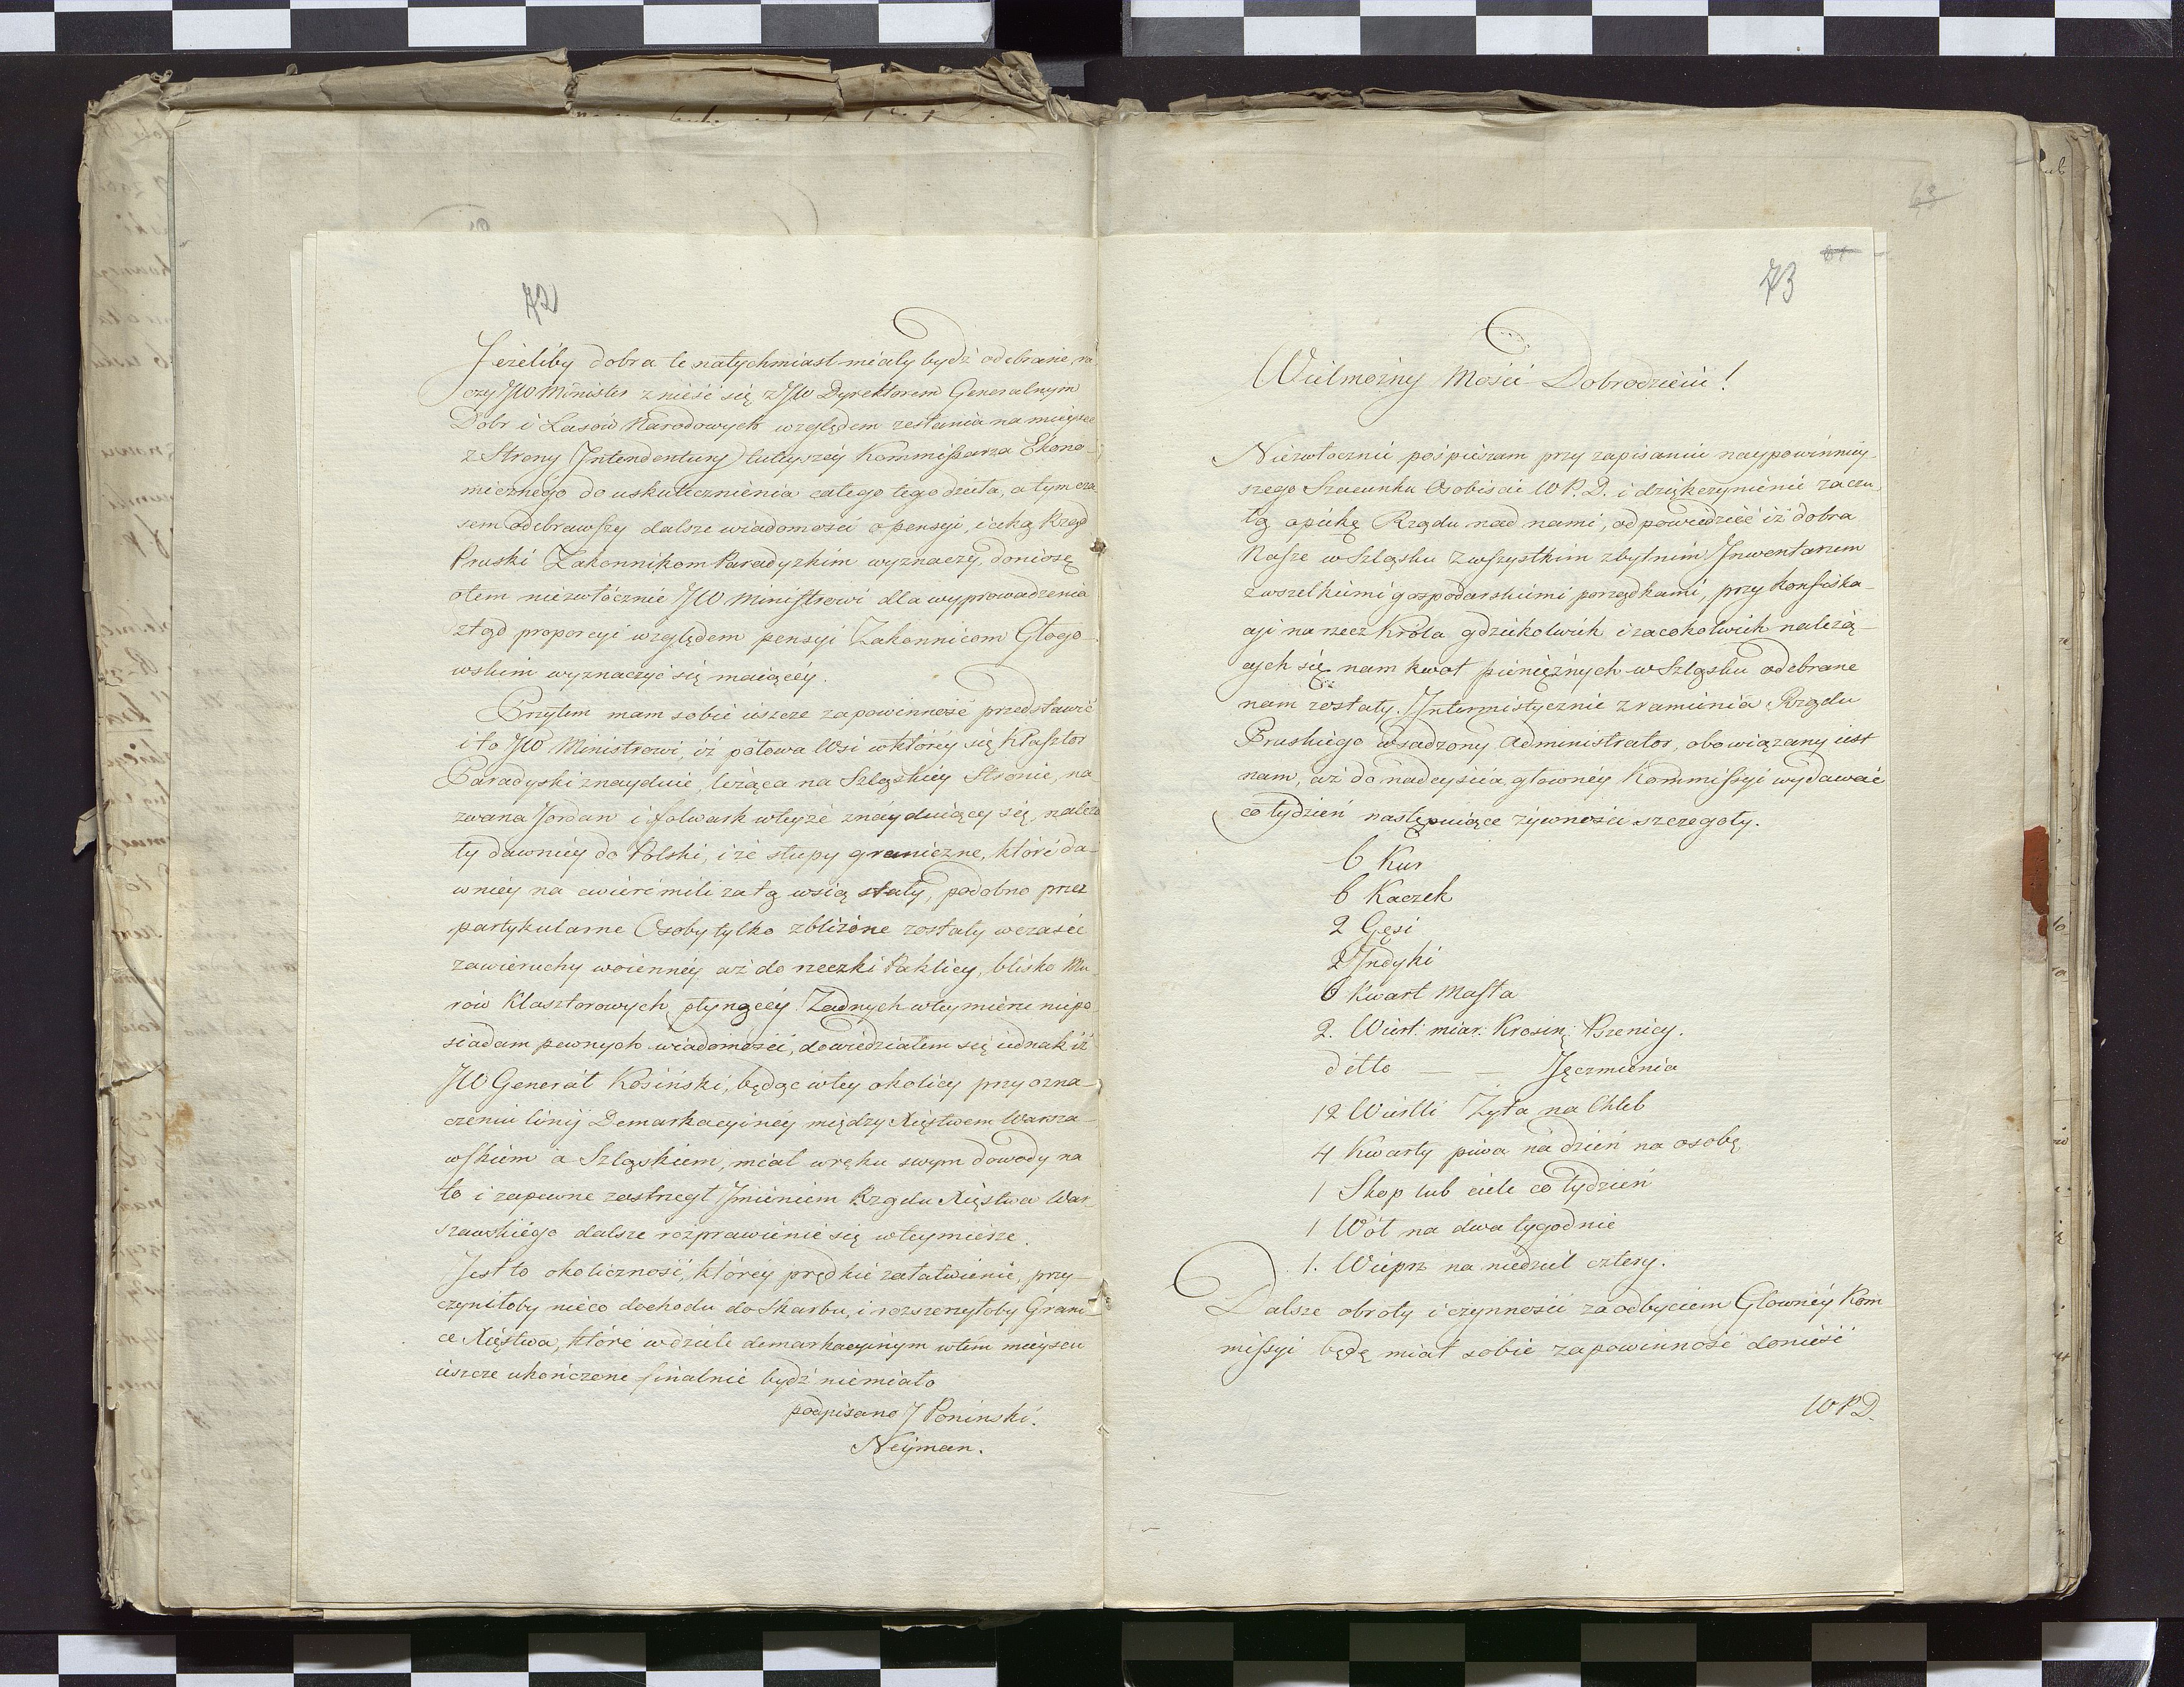 72
Jeżeliby dobra te natychmiast miały bydź odebrane, ra-
czy JW Minister znieść się z JW Dyrektorem Generalnym
Dobr i Lasów Narodowych względem zesłania na mieysce
z Strony Intendentury tuteyszéy Kommissarza Ekono-
micznégo do uskutecznienia całego tego dzieła, a tymcza
sem odebrawszy dalsze wiadomości o pensyi, iaką Rząd
Pruski Zakonnikom Paradyzkim wyznaczy, doniosę
otem niezwłócznie JW Ministrowi dla wyprowadzenia
ztąd proporcyi względem pensyi Zakonnicom Głogo-
wskim wyznaczyć się maiącéy.
Przytem mam sobie ieszcze zapowinność przedstawić
i to JW Ministrowi, iż połowa Wsi wktóréy się Klasztor
Paradyski znayduie, leżąca na Szląskiéy Stronie, na-
zwana Jordan i folwark wteyże znayduiący się, należa
ły dawniéy do Polski, i że słupy graniczne, które da-
wniéy na cwierć mili za tą wsią stały, podobno przez
partykularne Osoby tylko zbliżone zostały wczasie
zawieruchy woiennéy aż do rzeczki Paklicy, blisko Mu-
rów Klasztorowych płynącéy. Żadnych wteymierze niepo
siadam pewnych wiadomości, dowiedziałem się iednak iż
JW Generał Kosiński, będąc wtey okolicy przy ozna-
czeniu linij Demarkacyinéy między Xięstwem Warsza-
wskiem a Szląskiem, miał wręku swym dowody na
to i zapewne zastrzegł Jmieniem Rządu Xięstwa War-
szawskiégo dalsze rozprawienie się wteymierze.
Jest to okoliczność, którey prędkie załatwienie, przy-
czyniłoby nieco dochodu do Skarbu, i rozszerzyłoby Grani-
ce Xięstwa, które wdziele demarkacyinym wtém mieyscu
ieszcze ukończone finalnie bydź niemiało
podpisano J Poninski.
Neyman.
63
73
Wielmożny Mości Dobrodzieiu!
Niezwłocznie pośpieszam przy zapisaniu naypowinniey-
szego Szacunku Osobiscie WP.D. i dziękczynienie za czu-
łą opiekę Rządu nad nami, odpowiedzieć iż dobra
Nasze w Szląsku zwszystkim zbytnim Jnwentarzem
zwszelkiemi gospodarskiemi porządkami, przy konfiska-
cyi na rzecz Króla gdziekolwiek i zacokolwiek należą-
cych się nam kwot pieniężnych w Szląsku odebrane
nam zostały. Jntermistycznie zramienia Rządu
Pruskiego wsadzony Administrator, obowiązany iest
nam, aż do nadeyścia głownéy Kommissyi wydawać
co tydzień następuiące żywności szczegoły.
6 Kur
6 Kaczek
2 Gęsi
2 Jndyki
6 Kwart Masła
2. Wiert: miar: Krosin: Pszenicy.
ditto — — Jęczmienia
12 Wiertli Żyta na Chleb
4 Kwarty piwa na dzień na osobę
1 Skop lub ciele co tydzień
1 Wół na dwa tygodnie
1. Wieprz na niedziel cztery.
Dalsze obroty i czynności zaodbyciem Głownéy Kom
missyi będę miał sobie zapowinność donieść
WPD.